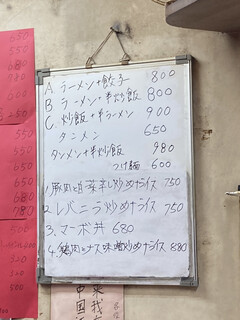 A ラーメン+餃子 800
B ラーメン+半炒飯 800
C 炒飯+半ラーメン 900
タンメン 650
タンメン+半炒飯 980
つけ麺 600
1.豚肉と 炒め+ライス 750
2.レバニラ炒め+ライス 750
3.マーボ丼 680
4.鶏肉とナス味噌炒め+ライス 880
550
550
680
780
650
250
550
500
500
550
650
650
680
780
500
320
300
500
来我
中国